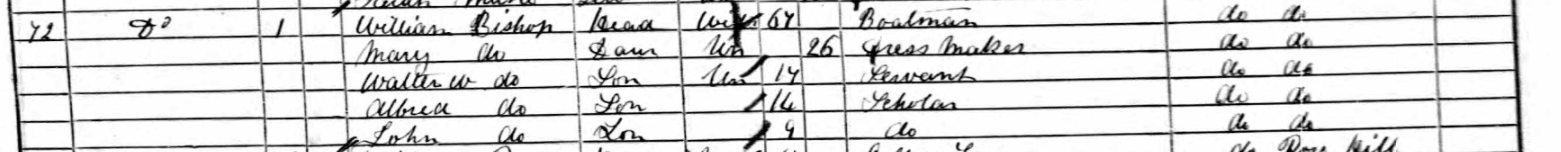 72 Do 1 William Bishop Head Widr 67 Boatman do do
Mary do Daur Un 26 Dress Maker do do
Walter W do Son Un 17 Servant do do
Alfred do Son 14 Scholar do do
John do Son 9 do do do
do Rose Hill